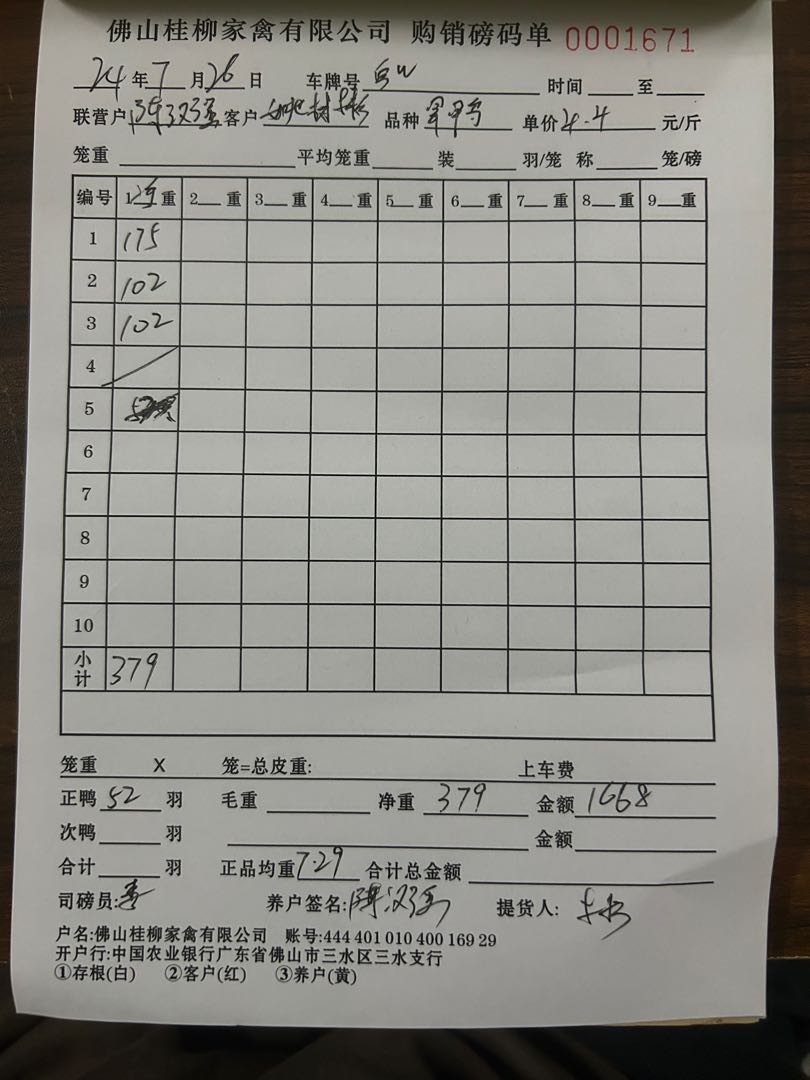 佛山桂柳家禽有限公司 购销磅码单 0001671
24年7月26日 车牌号 时间 至
联营户 陈汉强 客户 品种 单价 4.4 元/斤
笼重 平均笼重 装 羽/笼 称 笼/磅
编号 1 重 2 重 3 重 4 重 5 重 6 重 7 重 8 重 9 重
1 175
2 102
3 102
4
5
6
7
8
9
10
小计 379
笼重 X 笼=总皮重: 上车费
正鸭 52 羽 毛重 净重 379 金额 1668
次鸭 羽 金额
合计 羽 正品均重 7.29 合计总金额
司磅员: 养户签名: 陈汉强 提货人:
户名:佛山桂柳家禽有限公司 账号:444 401 010 400 169 29
开户行:中国农业银行广东省佛山市三水区三水支行
①存根(白) ②客户(红) ③养户(黄)